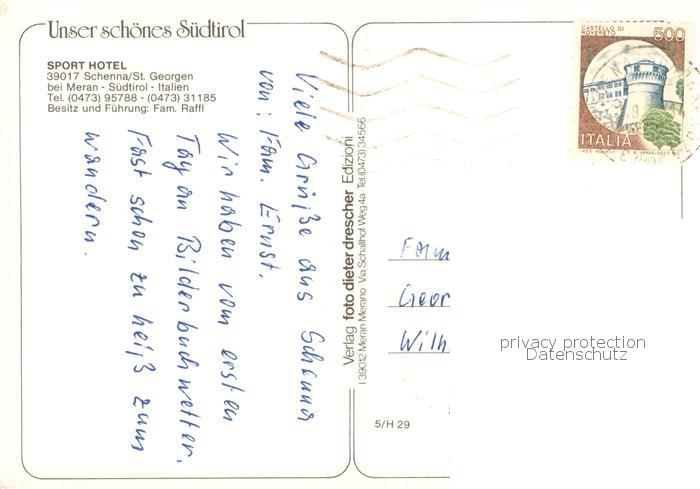 Unser schönes Südtirol
SPORT HOTEL
39017 Schenna/St. Georgen
bei Meran - Südtirol - Italien
Tel. (0473) 95788 - (0473) 31185
Besitz und Führung: Fam. Raffl
Viele Grüße aus Schenna
von: Fam. Ernst.
Wir haben vom ersten
Tag an Bilderbuchwetter.
Fast schon zu heiß zum
wandern.
Verlag foto dieter drescher Edizioni
I 39012 Meran Merano · Via Schallhof Weg 4a · Tel. (0473) 34566
CASTELLO DI
ROVERETO
500
ITALIA
Fam
Geor
Wilh
privacy protection
Datenschutz
5/H 29